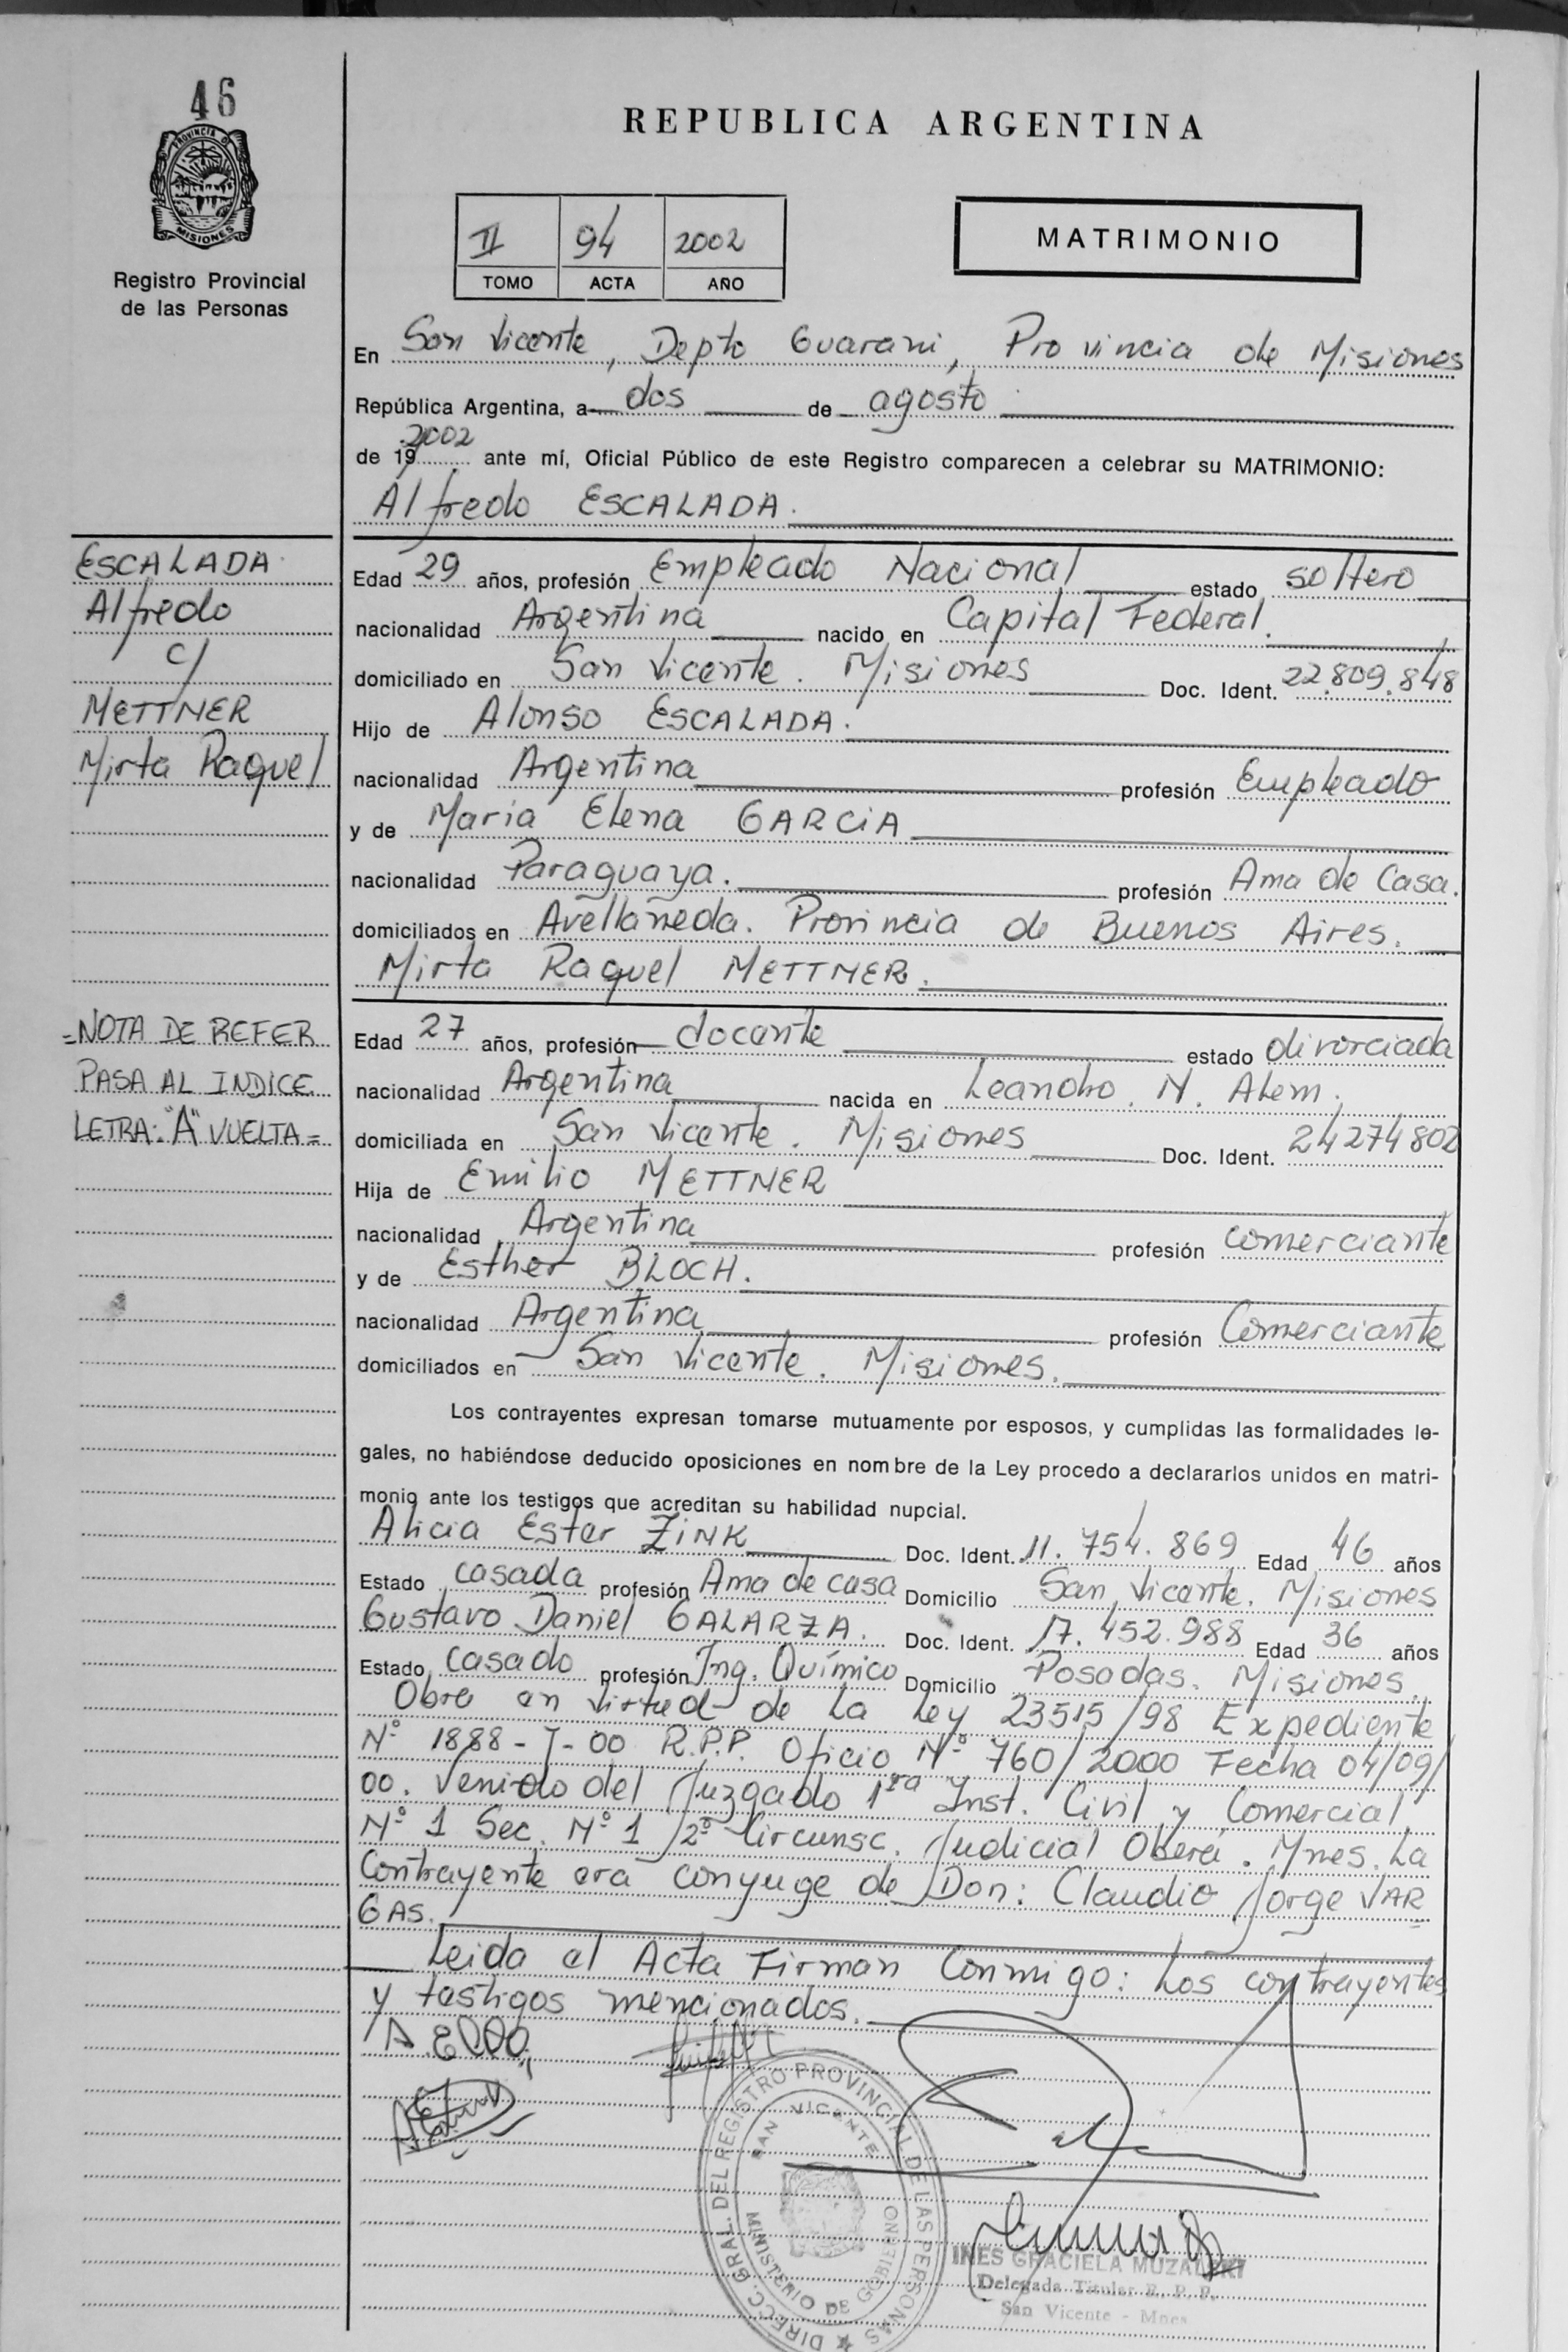 46
PROVINCIA DE
MISIONES
Registro Provincial
de las Personas
REPUBLICA ARGENTINA
II 94 2002
TOMO ACTA AÑO
MATRIMONIO
En San Vicente, Depto Guarani, Provincia de Misiones
República Argentina, a dos de agosto
de 19 2002 ante mí, Oficial Público de este Registro comparecen a celebrar su MATRIMONIO:
Alfredo ESCALADA.
ESCALADA
Alfredo
c/
METTNER
Mirta Raquel
Edad 29 años, profesión Empleado Nacional estado soltero
nacionalidad Argentina nacido en Capital Federal.
domiciliado en San Vicente. Misiones Doc. Ident. 22.809.848
Hijo de Alonso ESCALADA.
nacionalidad Argentina profesión Empleado
y de Maria Elena GARCiA
nacionalidad Paraguaya. profesión Ama de Casa.
domiciliados en Avellaneda. Provincia de Buenos Aires.
Mirta Raquel METTNER.
=NOTA DE REFER
PASA AL INDICE
LETRA: "A" VUELTA=
Edad 27 años, profesión docente estado divorciada
nacionalidad Argentina nacida en Leandro. N. Alem.
domiciliada en San Vicente. Misiones Doc. Ident. 24274802
Hija de Emilio METTNER
nacionalidad Argentina profesión comerciante
y de Esther BLOCH.
nacionalidad Argentina profesión Comerciante
domiciliados en San Vicente. Misiones.
Los contrayentes expresan tomarse mutuamente por esposos, y cumplidas las formalidades le-
gales, no habiéndose deducido oposiciones en nombre de la Ley procedo a declararlos unidos en matri-
monio ante los testigos que acreditan su habilidad nupcial.
Alicia Ester ZiNK Doc. Ident. 11.754.869 Edad 46 años
Estado casada profesión Ama de casa Domicilio San Vicente. Misiones
Gustavo Daniel GALARZA. Doc. Ident. 17.452.988 Edad 36 años
Estado casado profesión Ing. Químico Domicilio Posadas. Misiones.
Obra en virtud de la Ley 23515/98 Expediente
Nº 1888-J-00 R.P.P. Oficio Nº 760/2000 Fecha 04/09/
00. Venido del Juzgado 1ra Inst. Civil y Comercial
Nº 1 Sec. Nº 1 2º Circunsc. Judicial Oberá. Mnes. La
Contrayente era conyuge de Don: Claudio Jorge VAR
GAS.
Leida el Acta Firman Conmigo: Los contrayentes
y testigos mencionados.
DIRECC. GRAL. DEL REGISTRO PROVINCIAL DE LAS PERSONAS
SAN VICENTE
MINISTERIO DE GOBIERNO
INES GRACIELA MUZALSKI
Delegada Titular R. P. P.
San Vicente - Mnes